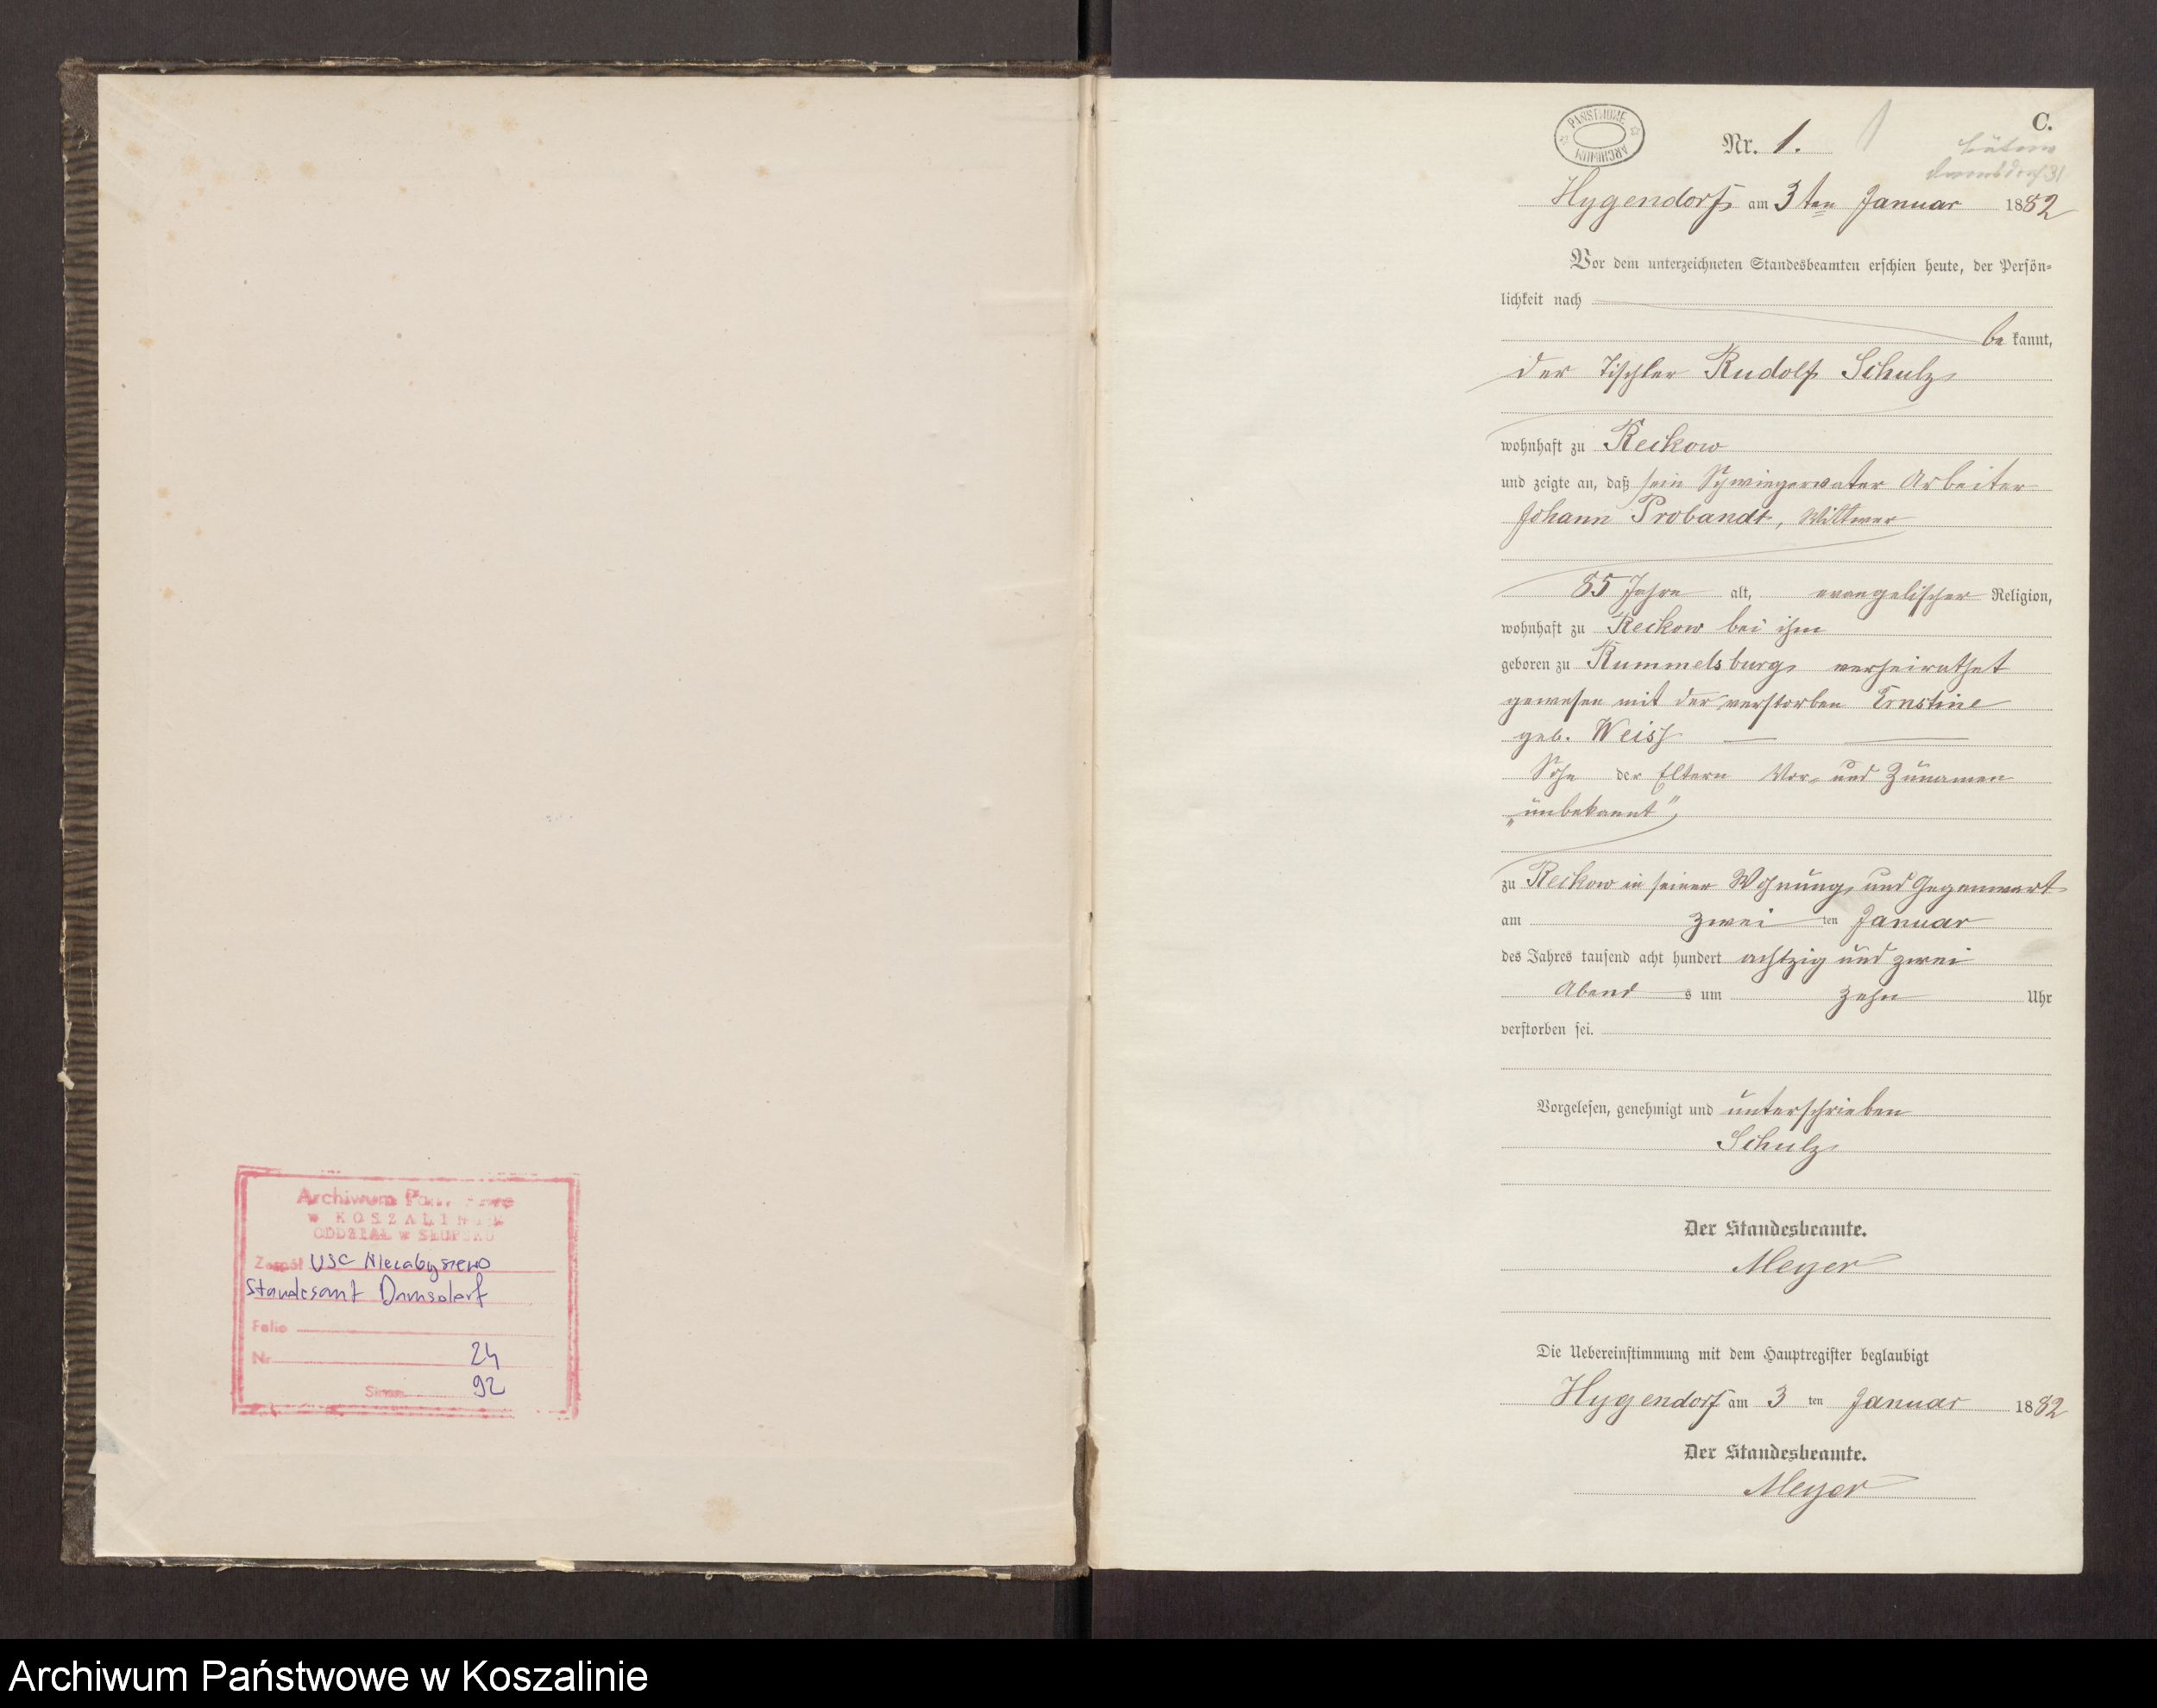 Archiwum
w KOSZALINIE
ODDZIAŁ w SŁUPSKU
Zespół USC Niezabyszewo
Standesamt Damsdorf
Folio
Nr 24
Stron 92
PAŃSTWOWE ARCHIWUM
C.
Nr. 1.
1
Bütow
Damsdorf 31
Hygendorf am 3ten Januar 1882
Vor dem unterzeichneten Standesbeamten erschien heute, der Persön-
lichkeit nach
be kannt,
der Tischler Rudolf Schulz
wohnhaft zu Reckow
und zeigte an, daß sein Schwiegervater Arbeiter
Johann Probandt, Wittwer
85 Jahre alt, evangelischer Religion,
wohnhaft zu Reckow bei ihm
geboren zu Rummelsburg verheirathet
gewesen mit der verstorben Ernstine
geb. Weiss
Sohn der Eltern Vor- und Zunamen
„unbekannt",
zu Reckow in seiner Wohnung und Gegenwart
am zwei ten Januar
des Jahres tausend acht hundert achtzig und zwei
Abend s um zehn Uhr
verstorben sei.
Vorgelesen, genehmigt und unterschrieben
Schulz
Der Standesbeamte.
Meyer
Die Uebereinstimmung mit dem Hauptregister beglaubigt
Hygendorf am 3 ten Januar 1882
Der Standesbeamte.
Meyer
Archiwum Państwowe w Koszalinie